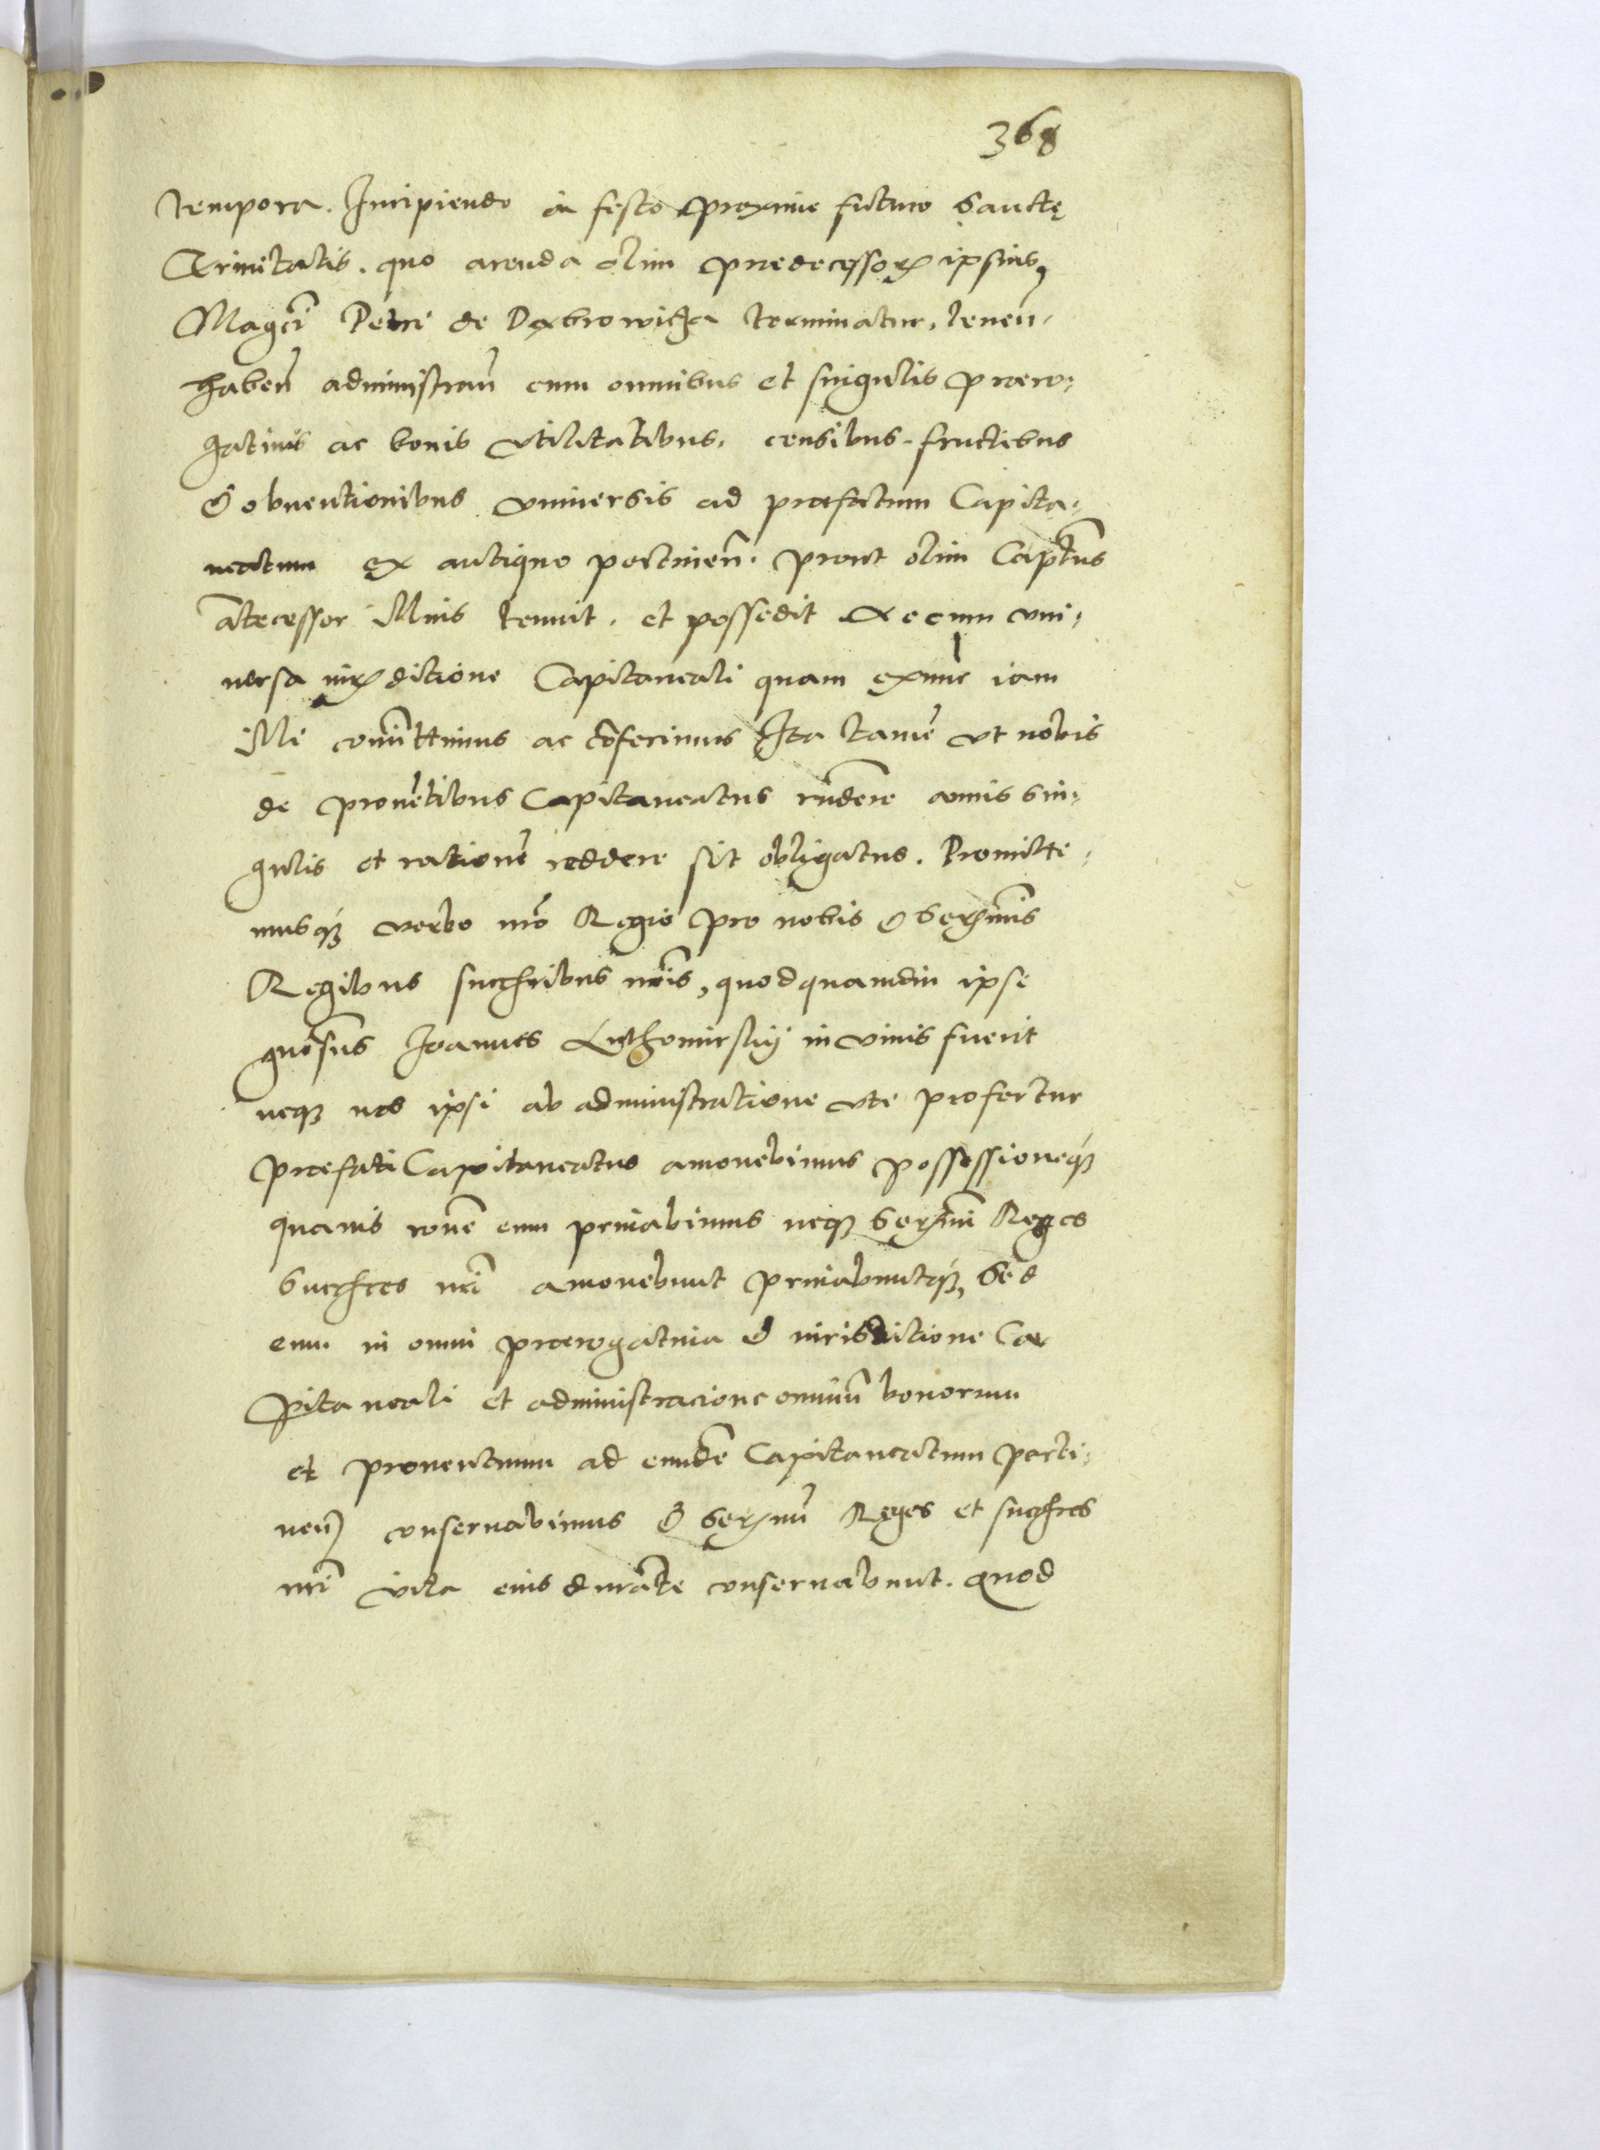 368
tempora. Incipiendo in festo proxime futuro Sanctę
Trinitatis. quo arenda olim predecessoris ipsius,
Magci Petri de Dąbrowicza terminatur, tenen̄.
haben̄ administran̄ cum omnibus et singulis prero,
gatiuis ac bonis vtilitatibus, censibus, fructibus
& obuentionibus vniuersis ad praefatum Capita,
neatum ex antiquo pertinen̄. prout olim Captus
ātecessor illius tenuit. et possedit ac cum vni,
uersa iurisditione Capitaneali quam exnunc iam
illi comittimus ac cōferimus Ita tamē vt nobis
de prouētibus Capitaneatus rndere annis sin,
gulis et rationē reddere sit obligatus. Promitte,
musq́ʒ verbo nr̄o Regio pro nobis & Sermis
Regibus succribus nr̄is, quod quamdiu ipse
gnosus Ioannes Luthomirskij in viuis fuerit
neqʒ nos ipsi ab administratione vte profertur
praefati Capitaneatus amouebimus possessioneq́ʒ
quauis rōne eum priuabimus neqʒ Sermi Reges
Succres nr̄i amouebunt priuabuntq́ʒ, Sed
eum in omni praerogatiua & iurisditione Ca
pitaneali et administracione omniū bonorum
et prouentuum ad eundē Capitaneatum perti,
nen̄ conseruabimus & Sermi Reges et succres
nr̄i vita eius durāte conseruabunt. quod